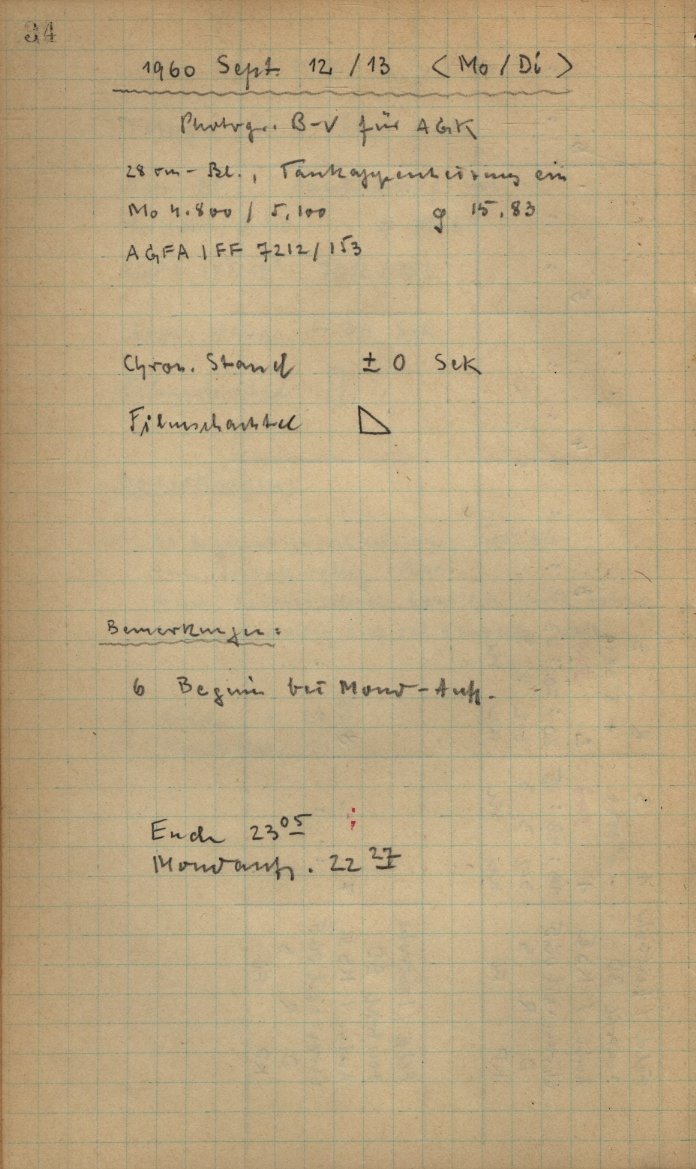 34
1960 Sept. 12/13 <Mo/Di>
Photogr. B-V für AGK
28 cm-Bl., Taukappenheizung ein
Mo 4.800 / 5,100 g 15,83
AGFA IFF 7212/153
Chron. Stand ± 0 Sek
Filmschachtel
Bemerkungen:
6 Beginn bei Mond-Aufg.
Ende 23 05 ;
Mondaufg. 22 27